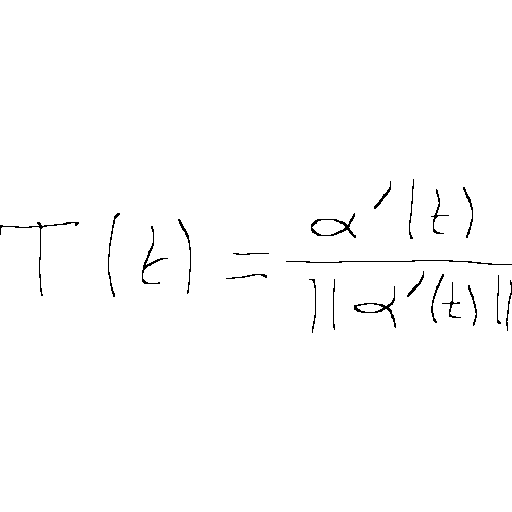 T(t) = \frac{α'(t)}{||α'(t)||}